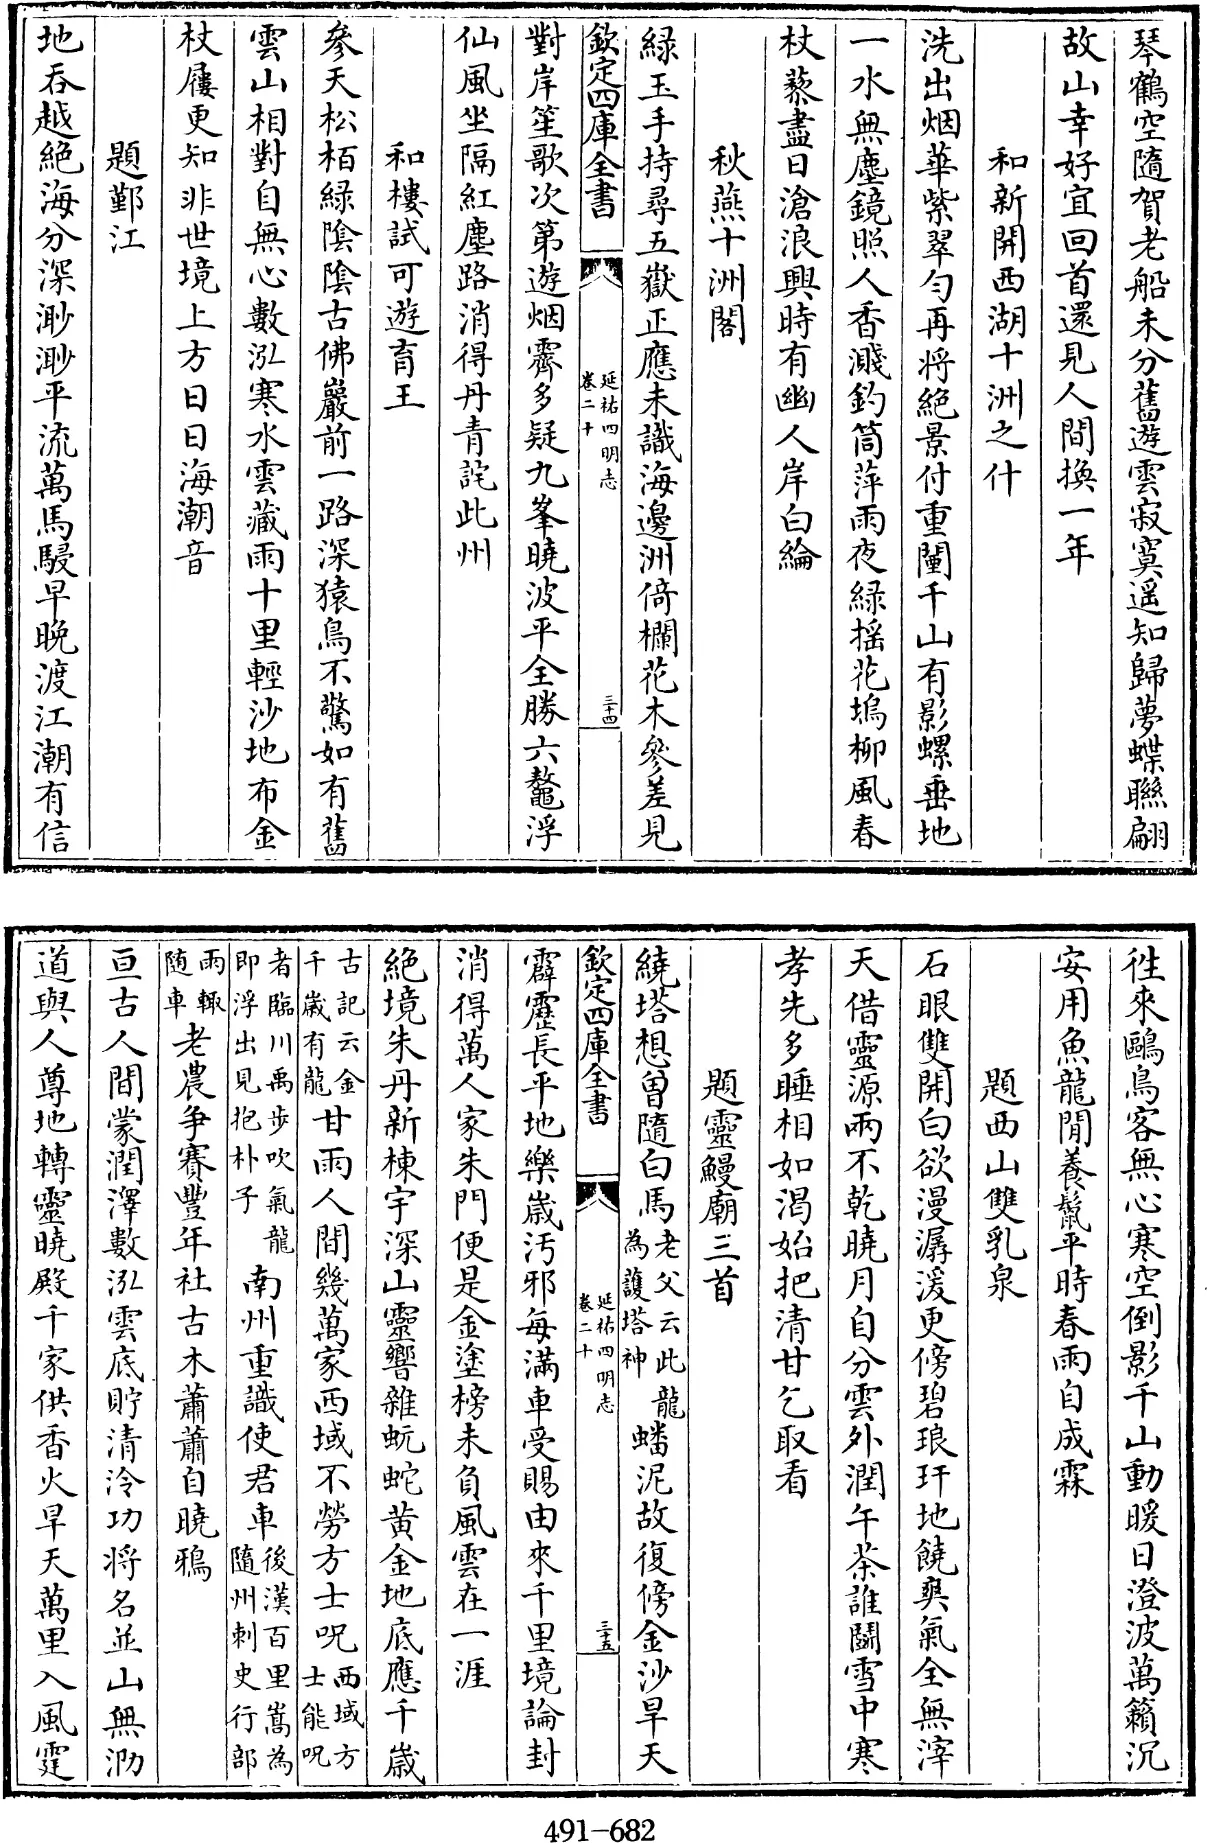 琴鶴空隨賀老船未分舊遊雲寂寞遥知歸夢蝶聯翩
故山幸好宜回首還見人間換一年
和新開西湖十洲之什
洗出烟華紫翠勻再将絶景付重闉千山有影螺垂地
一水無塵鏡照人香濺釣筒萍雨夜緑揺花塢柳風春
杖藜盡日滄浪興時有幽人岸白綸
秋燕十洲閣
緑玉手持尋五嶽正應未識海邊洲倚欄花木參差見
欽定四庫全書
延祐四明志
卷二十
三十四
對岸笙歌次第遊烟霽多疑九峯曉波平全勝六鼇浮
仙風坐隔紅塵路消得丹青詫此州
和樓試可遊育王
參天松栢緑陰陰古佛巖前一路深猿鳥不驚如有舊
雲山相對自無心數泓寒水雲藏雨十里輕沙地布金
杖屨更知非世境上方日日海潮音
題鄞江
地吞越絶海分深渺渺平流萬馬駸早晚渡江潮有信
徃來鷗鳥客無心寒空倒影千山動暖日澄波萬籟沉
安用魚龍閒養鬛平時春雨自成霖
題西山雙乳泉
石眼雙開白欲漫潺湲更傍碧琅玕地饒爽氣全無滓
天借靈源兩不乾曉月自分雲外潤午茶誰鬭雪中寒
孝先多睡相如渴始把清甘乞取看
題靈鰻廟三首
繞塔想曽隨白馬老父云此龍為護塔神蟠泥故復傍金沙旱天
欽定四庫全書
延祐四明志
卷二十
三十五
霹靂長平地樂嵗汚邪每滿車受賜由來千里境論封
消得萬人家朱門便是金塗榜未負風雲在一涯
絶境朱丹新棟宇深山靈響雜蚖蛇黄金地底應千嵗
古記云金千嵗有龍甘雨人間幾萬家西域不勞方士呪西域方士能呪
者臨川禹歩吹氣龍即浮出見抱朴子南州重識使君車後漢百里嵩為隨州刺史行部
雨輙隨車老農争賽豐年社古木蕭蕭自曉鴉
亘古人間蒙潤澤數泓雲底貯清泠功将名並山無泐
道與人尊地轉靈曉殿千家供香火旱天萬里入風霆
491-682